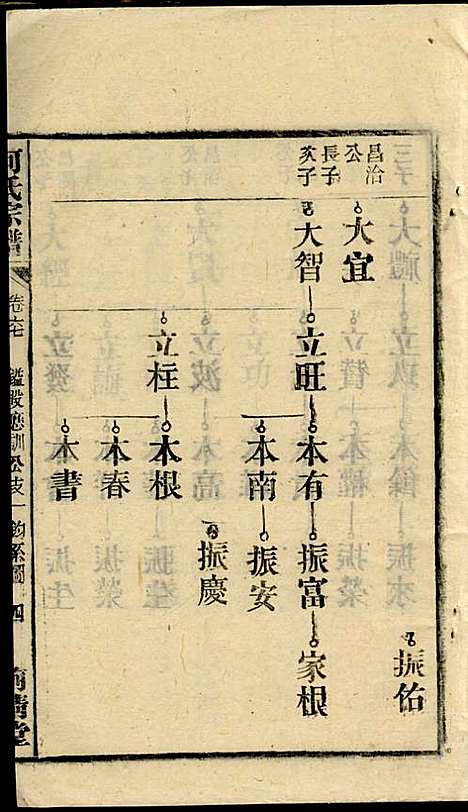 振佑
昌治公長子
大宜
次子
大智 立旺 本有 振富 家根
本南 振安
振慶
立柱 本根
本春
本書
何氏宗譜 卷之七 公支 鈞系圖 四